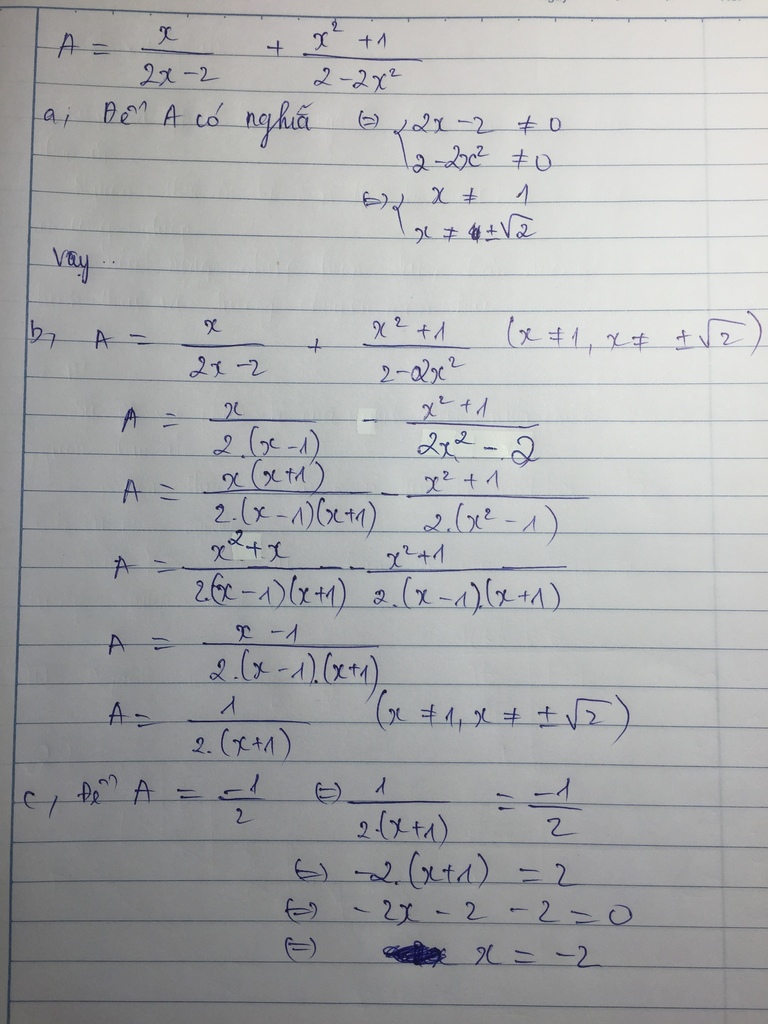 A = x/(2x-2) + (x² +1)/(2-2x²)
a, Để A có nghĩã ⇔ { 2x - 2 ≠ 0
2-2x² ≠ 0
⇔ { x ≠ 1
x ≠ ±√2
Vậy ..
b, A = x/(2x-2) + (x² +1)/(2-2x²) (x ≠ 1, x ≠ ±√2)
A = x/(2.(x-1)) - (x² +1)/(2x² - 2)
A = x(x+1)/(2.(x-1)(x+1)) - (x² +1)/(2.(x² -1))
A = (x²+x)/(2.(x-1)(x+1)) - (x²+1)/(2.(x-1).(x+1))
A = (x -1)/(2.(x-1).(x+1))
A = 1/(2.(x+1)) (x ≠ 1, x ≠ ±√2)
c, Để A = -1/2 ⇔ 1/(2.(x+1)) = -1/2
⇔ -2.(x+1) = 2
⇔ -2x - 2 - 2 = 0
⇔ x = -2